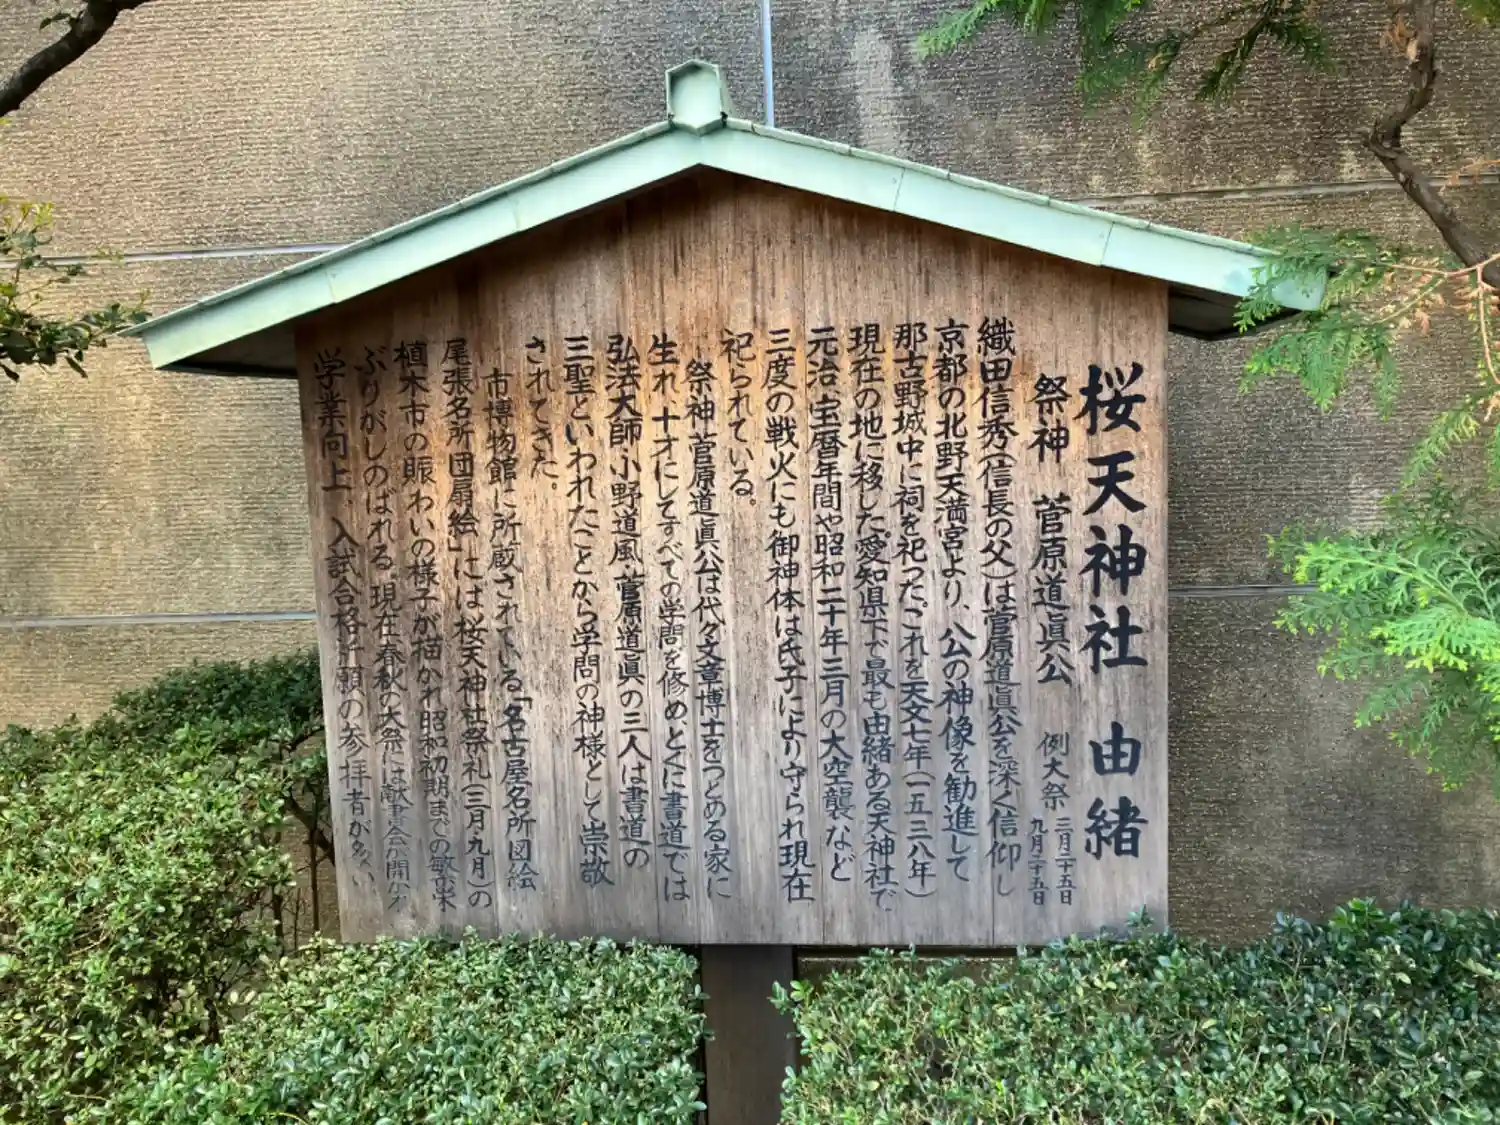 桜天神社 由緒
祭神 菅原道眞公 例大祭 三月二十五日
九月二十五日
織田信秀(信長の父)は菅原道眞公を深く信仰し
京都の北野天満宮より、公の神像を勧進して
那古野城中に祠を祀った。これを天文七年(一五三八年)
現在の地に移した。愛知県下で最も由緒ある天神社で
元治、宝暦年間や昭和二十年三月の大空襲など
三度の戦火にも御神体は氏子により守られ現在
祀られている。
祭神 菅原道眞公は代々文章博士をつとめる家に
生れ、十才にしてすべての学問を修め、とくに書道では
弘法大師・小野道風・菅原道眞の三人は書道の
三聖といわれたことから学問の神様として崇敬
されてきた。
市博物館に所蔵されている「名古屋名所図絵
尾張名所団扇絵」には桜天神社祭礼(三月・九月)の
植木市の賑わいの様子が描かれ昭和初期までの繁栄
ぶりがしのばれる。現在春秋の大祭には献書会が開かれ
学業向上、入試合格祈願の参拝者が多い。